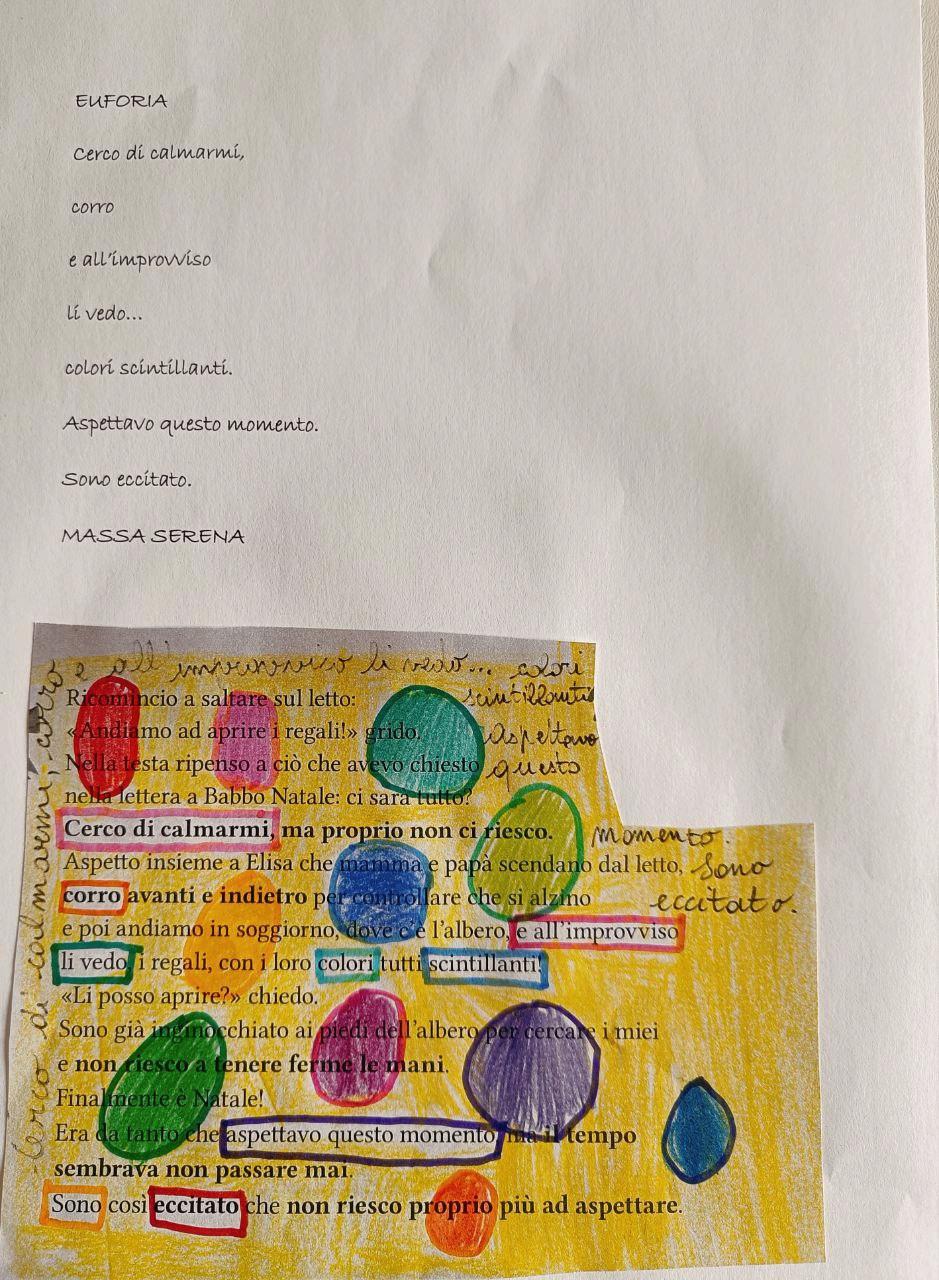 EUFORIA
Cerco di calmarmi,
corro
e all'improvviso
li vedo...
colori scintillanti.
Aspettavo questo momento.
Sono eccitato.
MASSA SERENA
Cerco di calmarmi, corro e all'improvviso li vedo... colori
scintillanti
Aspettavo
questo
momento.
Sono
eccitato.
Ricomincio a saltare sul letto:
«Andiamo ad aprire i regali!» grido.
Nella testa ripenso a ciò che avevo chiesto
nella lettera a Babbo Natale: ci sarà tutto?
Cerco di calmarmi, ma proprio non ci riesco.
Aspetto insieme a Elisa che mamma e papà scendano dal letto,
corro avanti e indietro per controllare che si alzino
e poi andiamo in soggiorno, dove c'è l'albero, e all'improvviso
li vedo, i regali, con i loro colori tutti scintillanti!
«Li posso aprire?» chiedo.
Sono già inginocchiato ai piedi dell'albero per cercare i miei
e non riesco a tenere ferme le mani.
Finalmente è Natale!
Era da tanto che aspettavo questo momento, ma il tempo
sembrava non passare mai.
Sono così eccitato che non riesco proprio più ad aspettare.